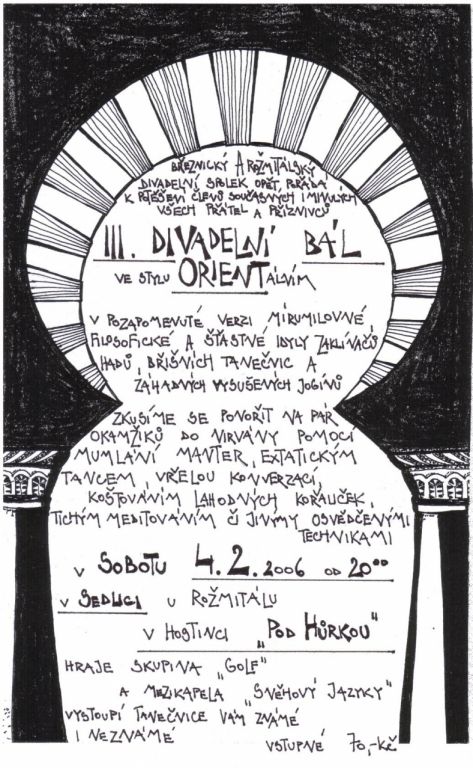 BŘEZNICKÝ A ROŽMITÁLSKÝ
DIVADELNÍ SPOLEK OPĚT POŘÁDÁ
K POTĚŠENÍ ČLENŮ SOUČASNÝCH I MINULÝCH
VŠECH PŘÁTEL A PŘÍZNIVCŮ
III. DIVADELNÍ BÁL
VE STYLU ORIENTÁLNÍM
V POZAPOMENUTÉ VERZI MÍRUMILOVNÉ,
FILOSOFICKÉ A ŠŤASTNÉ IDYLY ZAKLÍNAČŮ
HADŮ, BŘIŠNÍCH TANEČNIC A
ZÁHADNÝCH VYSUŠENÝCH JOGÍNŮ
ZKUSÍME SE PONOŘIT NA PÁR
OKAMŽIKŮ DO NIRVÁNY POMOCÍ
MUMLÁNÍ MANTER, EXTATICKÝM
TANCEM, VŘELOU KONVERZACÍ,
KOŠTOVÁNÍM LAHODNÝCH KOŘALIČEK,
TICHÝM MEDITOVÁNÍM ČI JINÝMY OSVĚDČENÝMI
TECHNIKAMI
V SOBOTU 4.2.2006 OD 20⁰⁰
V SEDLICI U ROŽMITÁLU
V HOSTINCI „POD HŮRKOU"
HRAJE SKUPINA „GOLF"
A MEZIKAPELA „SNĚHOVÝ JAZYKY"
VYSTOUPÍ TANEČNICE VÁM ZNÁMÉ
I NEZNÁMÉ
VSTUPNÉ 70,-KČ